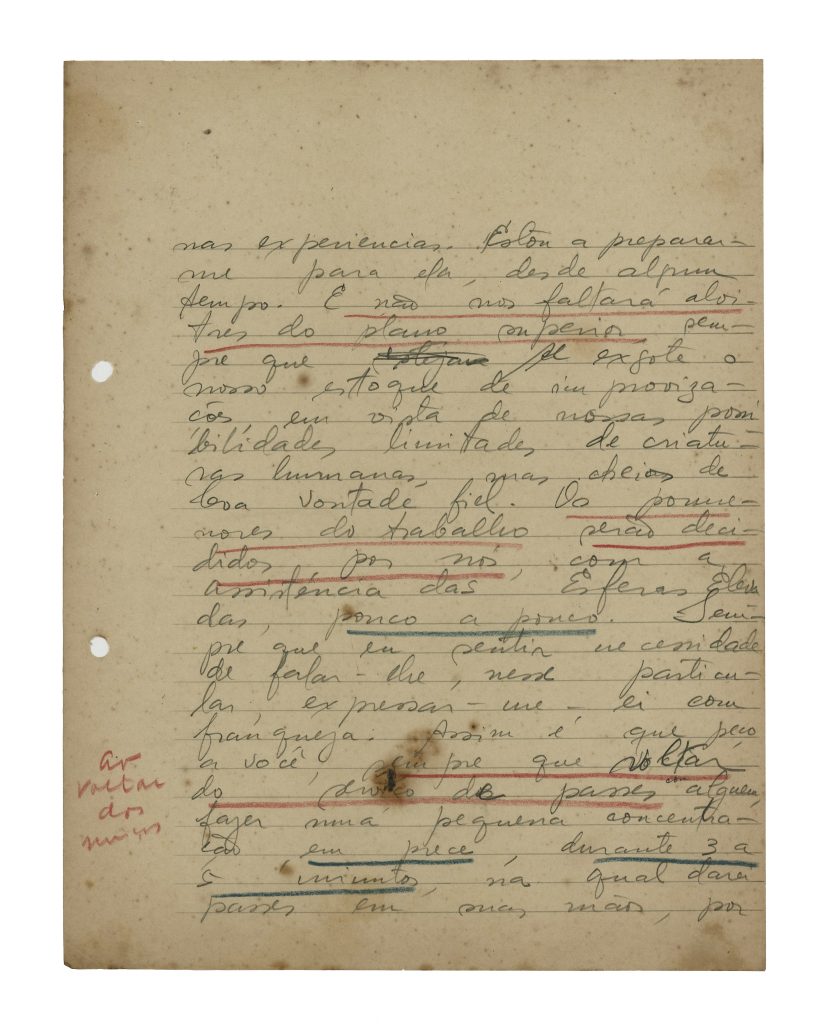 nas experiencias. Estou a preparar-
me para ela, desde algum
tempo. E não nos faltará alvi-
tres do plano superior, sem-
pre que se exgote o
nosso estoque de improviza-
ções em vista de nossas possi
bilidades limitadas de criatu-
ras humanas, mas cheias de
boa vontade fiel. Os porme-
nores do trabalho serão deci-
didos por nós, com a
assistência das Esferas Eleva
das, pouco a pouco. Sem-
pre que eu sentir necessidade
de falar-lhe, nesse particu-
lar, expressar-me-ei com
franqueza. Assim é que peço
a você, sempre que voltar
do serviço de passes com alguem,
fazer uma pequena concentra-
ção em prece, durante 3 a
5 minutos, na qual darei
passes em suas mãos, por
ao
voltar
dos